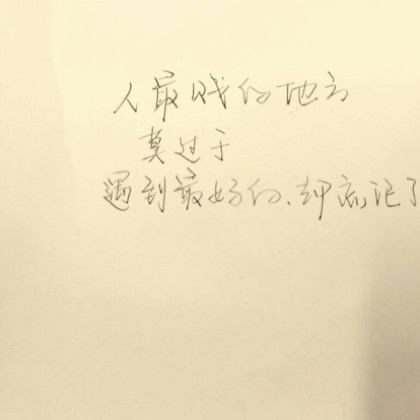 人最贱的地方
莫过于
遇到最好的、却忘记了